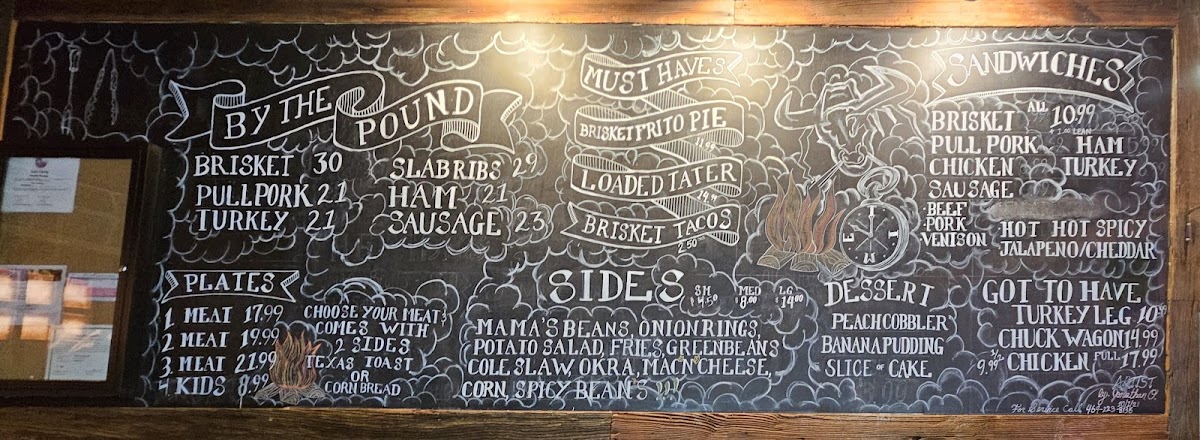 BY THE
POUND
BRISKET 30
PULLPORK 21
TURKEY 21
SLAB RIBS 29
HAM 21
SAUSAGE 23
MUST HAVES
BRISKET FRITO PIE
LOADED TATER
BRISKET TACOS
2.50
SANDWICHES
ALL 10.99
BRISKET
$1.00 LEAN
PULL PORK HAM
CHICKEN TURKEY
SAUSAGE
BEEF
PORK
VENISON
HOT HOT SPICY
JALAPENO/CHEDDAR
PLATES
1 MEAT 17.99
2 MEAT 19.99
3 MEAT 21.99
4 KIDS 8.99
CHOOSE YOUR MEATS
COMES WITH
2 SIDES
TEXAS TOAST
OR
CORN BREAD
SIDES
SM MED LG
$4.50 $8.00 $14.00
MAMA'S BEANS, ONION RINGS,
POTATO SALAD, FRIES, GREENBEANS
COLE SLAW, OKRA, MAC'N CHEESE,
CORN, SPICY BEANS
DESSERT
PEACH COBBLER
BANANA PUDDING
SLICE OF CAKE
GOT TO HAVE
TURKEY LEG 10.99
CHUCK WAGON 14.99
9.99 1/2 CHICKEN FULL 17.99
ARTIST
For Service Call